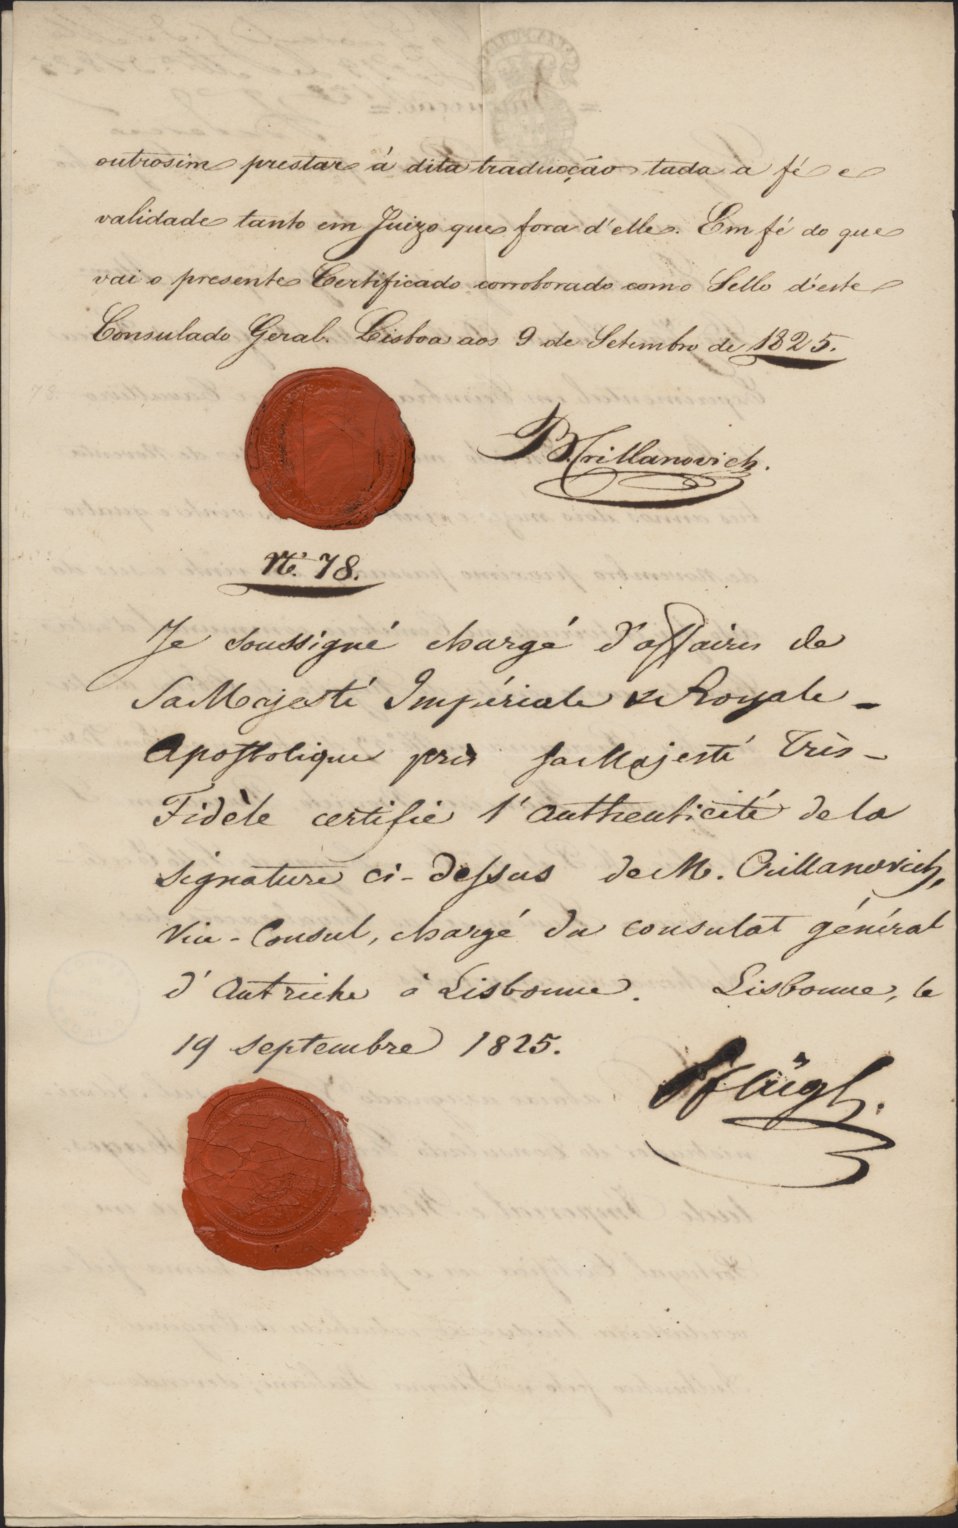 outrosim prestar á dita traducção tada a fé e
validade tanto em Juizo que fora d'elle. Em fé do que
vai o presente Certificado corroborado com o Sello d'este
Consulado Geral. Lisboa aos 9 de Setembro de 1825.
B. Crillanovich.
No. 78.
Je soussigné chargé d'affaires de
Sa Majesté Impériale & Royale
Apostolique près sa Majesté Très-
Fidèle certifie l'authenticité de la
signature ci-dessus de M. Crillanovich,
Vice-Consul, chargé du consulat général
d'Autriche à Lisbonne. Lisbonne, le
19 septembre 1825.
Pflügl.